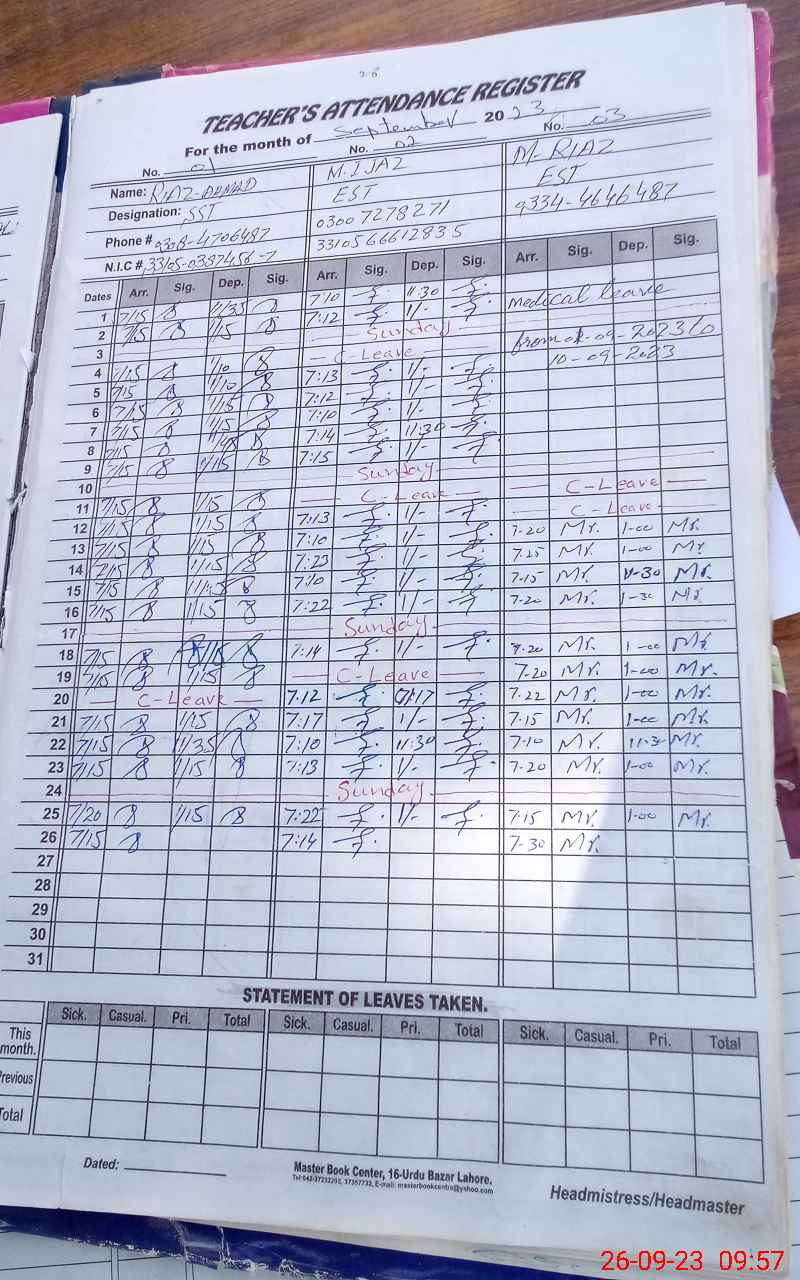 TEACHER'S ATTENDANCE REGISTER
For the month of September 2023
No. 01 No. 02 No. 03
Name: RIAZ AHMAD M. IJAZ M-RIAZ
Designation: SST EST EST
Phone # 0300 7278271 9334-4646487
N.I.C # 33105-0387456-7 3310566612835
Dates Arr. Sig. Dep. Sig. Arr. Sig. Dep. Sig. Arr. Sig. Dep. Sig.
1 7/15 11/35 7:10 11:30 Medical leave
2 7/15 1/15 7:12 1/-
3 Sunday from 02-09-2023 to
4 7/15 1/10 C-Leave 10-09-2023
5 7/15 1/10 7:13 1/-
6 7/15 1/15 7:12 1/-
7 7/15 1/15 7:10 1/-
8 7/15 7:14 11:30
9 7/15 1/15 7:15 1/-
10 Sunday
11 7/15 1/15 C-Leave C-Leave
12 7/15 1/15 7:13 1/- C-Leave
13 7/15 1/15 7:10 1/- 7-20 Mr. 1-00 Mr.
14 7/15 1/15 7:23 1/- 7.25 Mr. 1-00 Mr
15 7/15 7:10 1/- 7-15 Mr. 11-30 Mr.
16 7/15 1/15 7:22 1/- 7-20 Mr. 1-30 Mr.
17 Sunday
18 7/15 1/15 7:14 1/- 7-20 Mr. 1-00 Mr.
19 7/15 1/15 C-Leave 7-20 Mr. 1-00 Mr.
20 C-Leave 7:12 7-22 Mr. 1-00 Mr.
21 7/15 1/15 7:17 1/- 7-15 Mr. 1-00 Mr.
22 7/15 11/35 7:10 11:30 7-10 Mr. 11-3 Mr.
23 7/15 1/15 7:13 1/- 7-20 Mr. 1-00 Mr.
24 Sunday
25 7/20 1/15 7:22 1/- 7:15 Mr. 1-00 Mr.
26 7/15 7:14 7-30 Mr.
27
28
29
30
31
STATEMENT OF LEAVES TAKEN.
Sick. Casual. Pri. Total Sick. Casual. Pri. Total Sick. Casual. Pri. Total
This month.
Previous
Total
Dated:
Master Book Center, 16-Urdu Bazar Lahore.
Headmistress/Headmaster
26-09-23 09:57